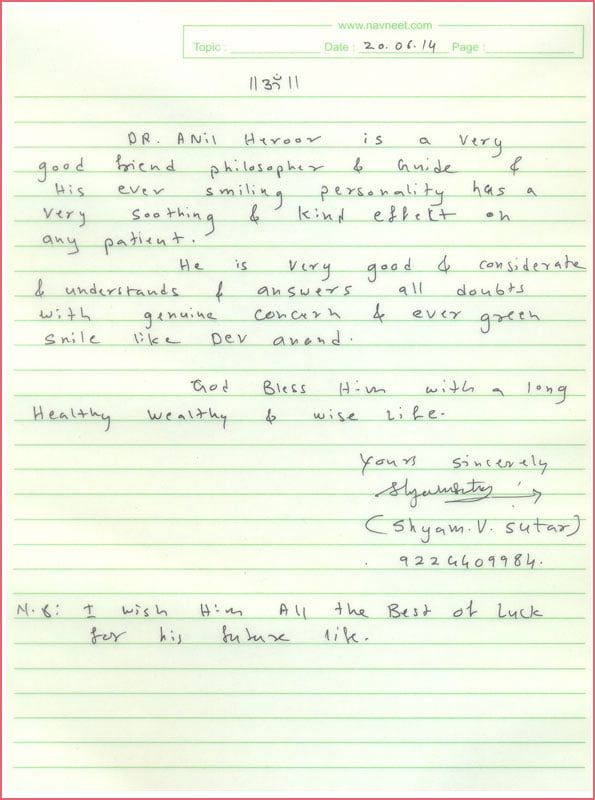 www.navneet.com
Topic : Date : 20.06.14 Page :
||ॐ||
DR. ANil Heroor is a very
good friend philosopher & Guide &
His ever smiling personality has a
very soothing & kind effect on
any patient.
He is very good & considerate
& understands & answers all doubts
with genuine concern & ever green
smile like Dev anand.
God Bless Him with a long
Healthy wealthy & wise life.
Yours sincerely
(Shyam.V. Sutar)
9224409984.
N.B: I wish Him All the Best of Luck
for his future life.